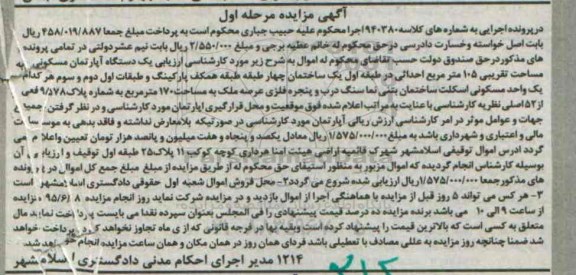 آگهی مزایده مرحله اول
درپرونده اجرایی به شماره های کلاسه ۹۴۰۳۸۰ اجرا محکوم علیه حبیب جباری محکوم است به پرداخت مبلغ جمعا ۴۵۸/۰۱۹/۸۸۷ ریال
بابت اصل خواسته وخسارت دادرسی درحق محکوم له خانم عطیه برجی و مبلغ ۲/۵۵۰/۰۰۰ ریال بابت نیم عشردولتی در تمامی پرونده
های مذکوردرحق صندوق دولت حسب تقاضای محکوم له اموال به شرح زیر مورد کارشناسی ارزیابی یک دستگاه آپارتمان مسکونی به
مساحت تقریبی ۱۰۵ متر مربع احداثی در طبقه اول یک ساختمان چهار طبقه طبقه همکف پارکینگ و طبقات اول دوم و سوم هر کدام
یک واحد مسکونی اسکلت ساختمان بتنی نما سنگ درب و پنجره فلزی عرصه ملک به مساحت ۱۷۰ مترمربع به شماره پلاک ۹/۵۷۸ فرعی
از ۵۲ اصلی نظریه کارشناسی با عنایت به مراتب اعلام شده فوق موقعیت و محل قرار گیری آپارتمان مورد کارشناسی و در نظر گرفتن جمیع
جهات و عوامل موثر در امر کارشناسی ارزش ریالی آپارتمان مورد کارشناسی در صورتیکه بلامعارض نداشته و فاقد بدهی به موسسات
مالی و اعتباری و شهرداری باشد به مبلغ ۱/۵۷۵/۰۰۰/۰۰۰ ریال معادل یکصد و پنجاه و هفت میلیون و پانصد هزار تومان تعیین واعلام می
گردد ادرس اموال توقیفی اسلامشهر شهرک قائمیه اراضی هیئت امنا هرداری کوچه کوکب ۱۱ پلاک ۲۵ طبقه اول توقیف و ارزیابی آن
بوسیله کارشناس انجام گردیده که اموال مزبور به منظور استیفای حق محکوم له از طریق مزایده از مبلغ مبلغ جمع کل اموال در پرونده
های مذکورجمعا ۱/۵۷۵/۰۰۰/۰۰۰ ریال ارزیابی شده شروع می گردد ۲- محل فروش اموال شعبه اول حقوقی دادگستری اسلامشهر است
۳- هر کس می تواند ۵ روز قبل از مزایده با هماهنگی اجرا از اموال بازدید و در مزایده شرکت نماید روز انجام مزایده ۹۵/۶/۸ مزایده
از ساعت ۹ الی ۱۰ می باشد برنده مزایده ده درصد قیمت پیشنهادی را فی المجلس بعنوان سپرده نقدا می بایست پرداخت نماید مال
متعلق به کسی است که بالاترین قیمت را پیشنهاد کرده است وبقیه بها در فرجه قانونی که از ی ماه تجاوز نخواهد کرد پرداخت خواهد
شد ضمنا چنانچه روز مزایده به عللی مصادف با تعطیلی باشد فردای همان روز در همان مکان و همان ساعت مزایده انجام خواهد شد.
۱۲۱۴ مدیر اجرای احکام مدنی دادگستری اسلامشهر